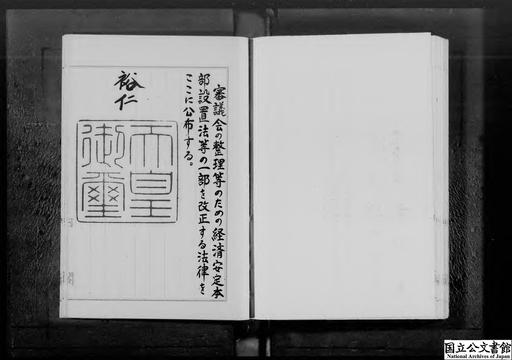 審議会の整理等のための経済安定本
部設置法等の一部を改正する法律を
ここに公布する。
裕仁
天皇
御璽
国立公文書館
National Archives of Japan